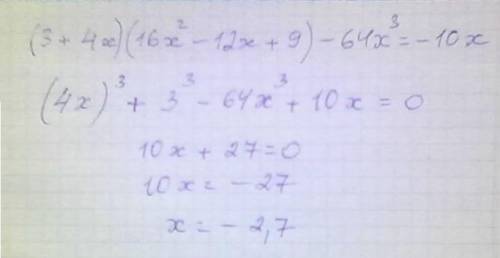 (3 + 4x)(16x² - 12x + 9) - 64x³ = -10x
(4x)³ + 3³ - 64x³ + 10x = 0
10x + 27 = 0
10x = -27
x = -2,7